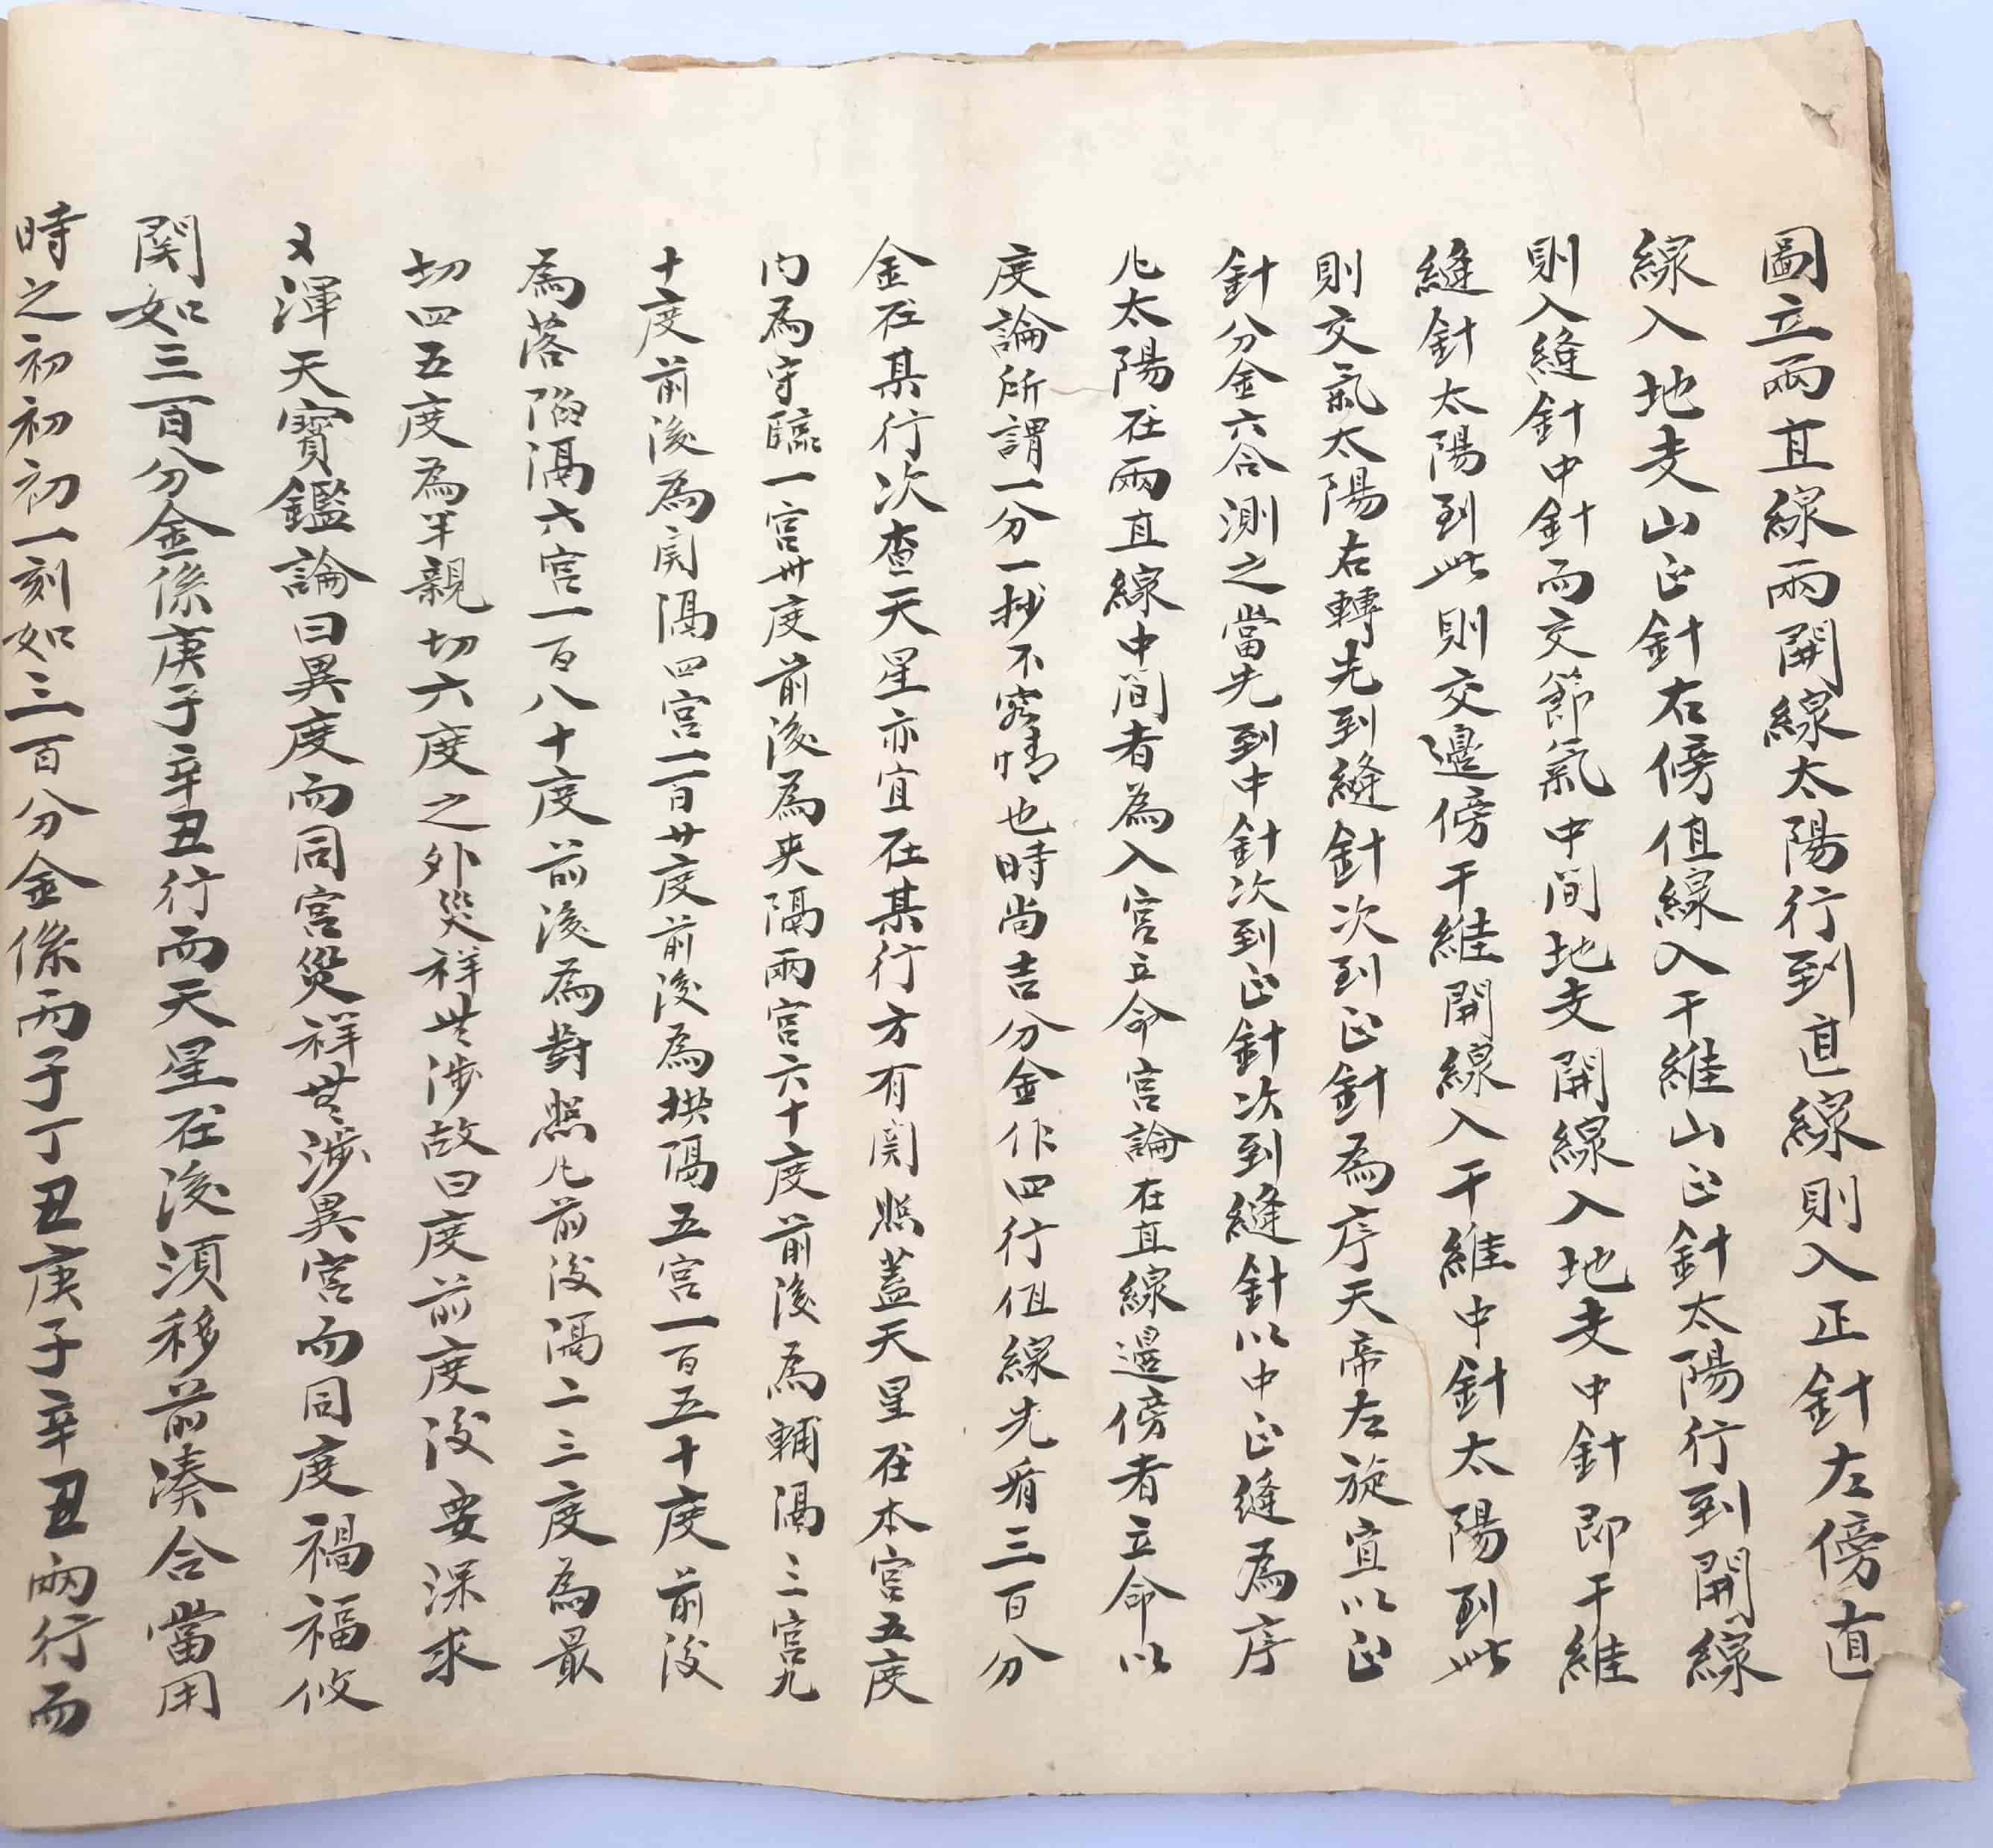 圖立兩直線兩開線太陽行到直線則入正針左傍直
線入地支山正針右傍值線入干維山正針太陽行到開線
則入縫針中針而交節氣中間地支開線入地支中針即干維
縫針太陽到此則交邊傍干維開線入干維中針太陽到此
則交氣太陽右轉先到縫針次到正針為序天帝左旋宜以正
針分金六合測之當先到中針次到正針次到縫針以中正縫為序
凡太陽在兩直線中間者為入宮立命宮論在直線邊傍者立命以
度論所謂一分一抄不容情也時尚吉分金作四行值線先看三百分
金在某行次查天星亦宜在某行方有関照蓋天星在本宮五度
内為守臨一宮卅度前後為夾隔兩宮六十度前後為輔隔三宮九
十度前後為関隔四宮一百廿度前後為拱隔五宮一百五十度前後
為落陷隔六宮一百八十度前後為對照凡前後隔二三度為最
切四五度為半親切六度之外災祥無涉故曰度前度後要深求
又渾天寳鑑論曰異度而同宮災祥無涉異宮而同度禍福攸
関如三百分金係庚子辛丑行而天星在後須移前湊合當用
時之初初初一刻如三百分金係丙子丁丑庚子辛丑兩行而